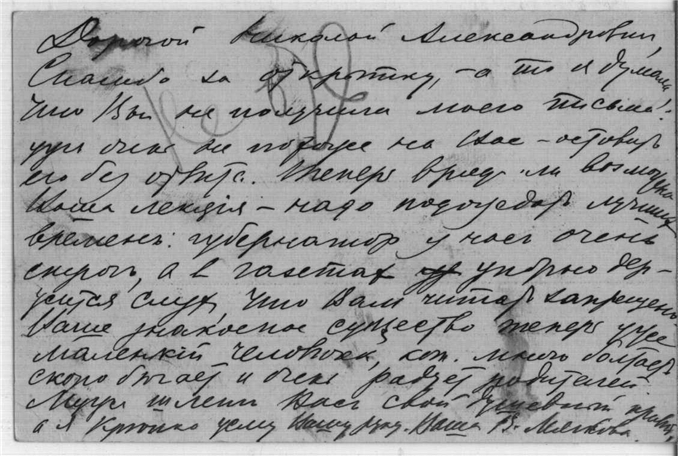 Дорогой Николай Александрович,
Спасибо за открытку, – а то я думала
что Вы не получили моего письма:
уж очень не похоже на Вас – оставить
его без ответа. Теперь вряд-ли возможна
Ваша лекція – надо подождать лучших
временъ: губернаторъ у насъ очень
строгъ, а в газетах упорно дер-
жится слух, что Вам читать запрещено.
Ваше знакомое существо теперь уже
маленькій человѣчек, кот. много болтает
скоро бѣгает и очень радует родителей.
шлет Вам свой душевный привѣт,
а я крѣпко жму Вашу руку. Ваша В. Мягкова.